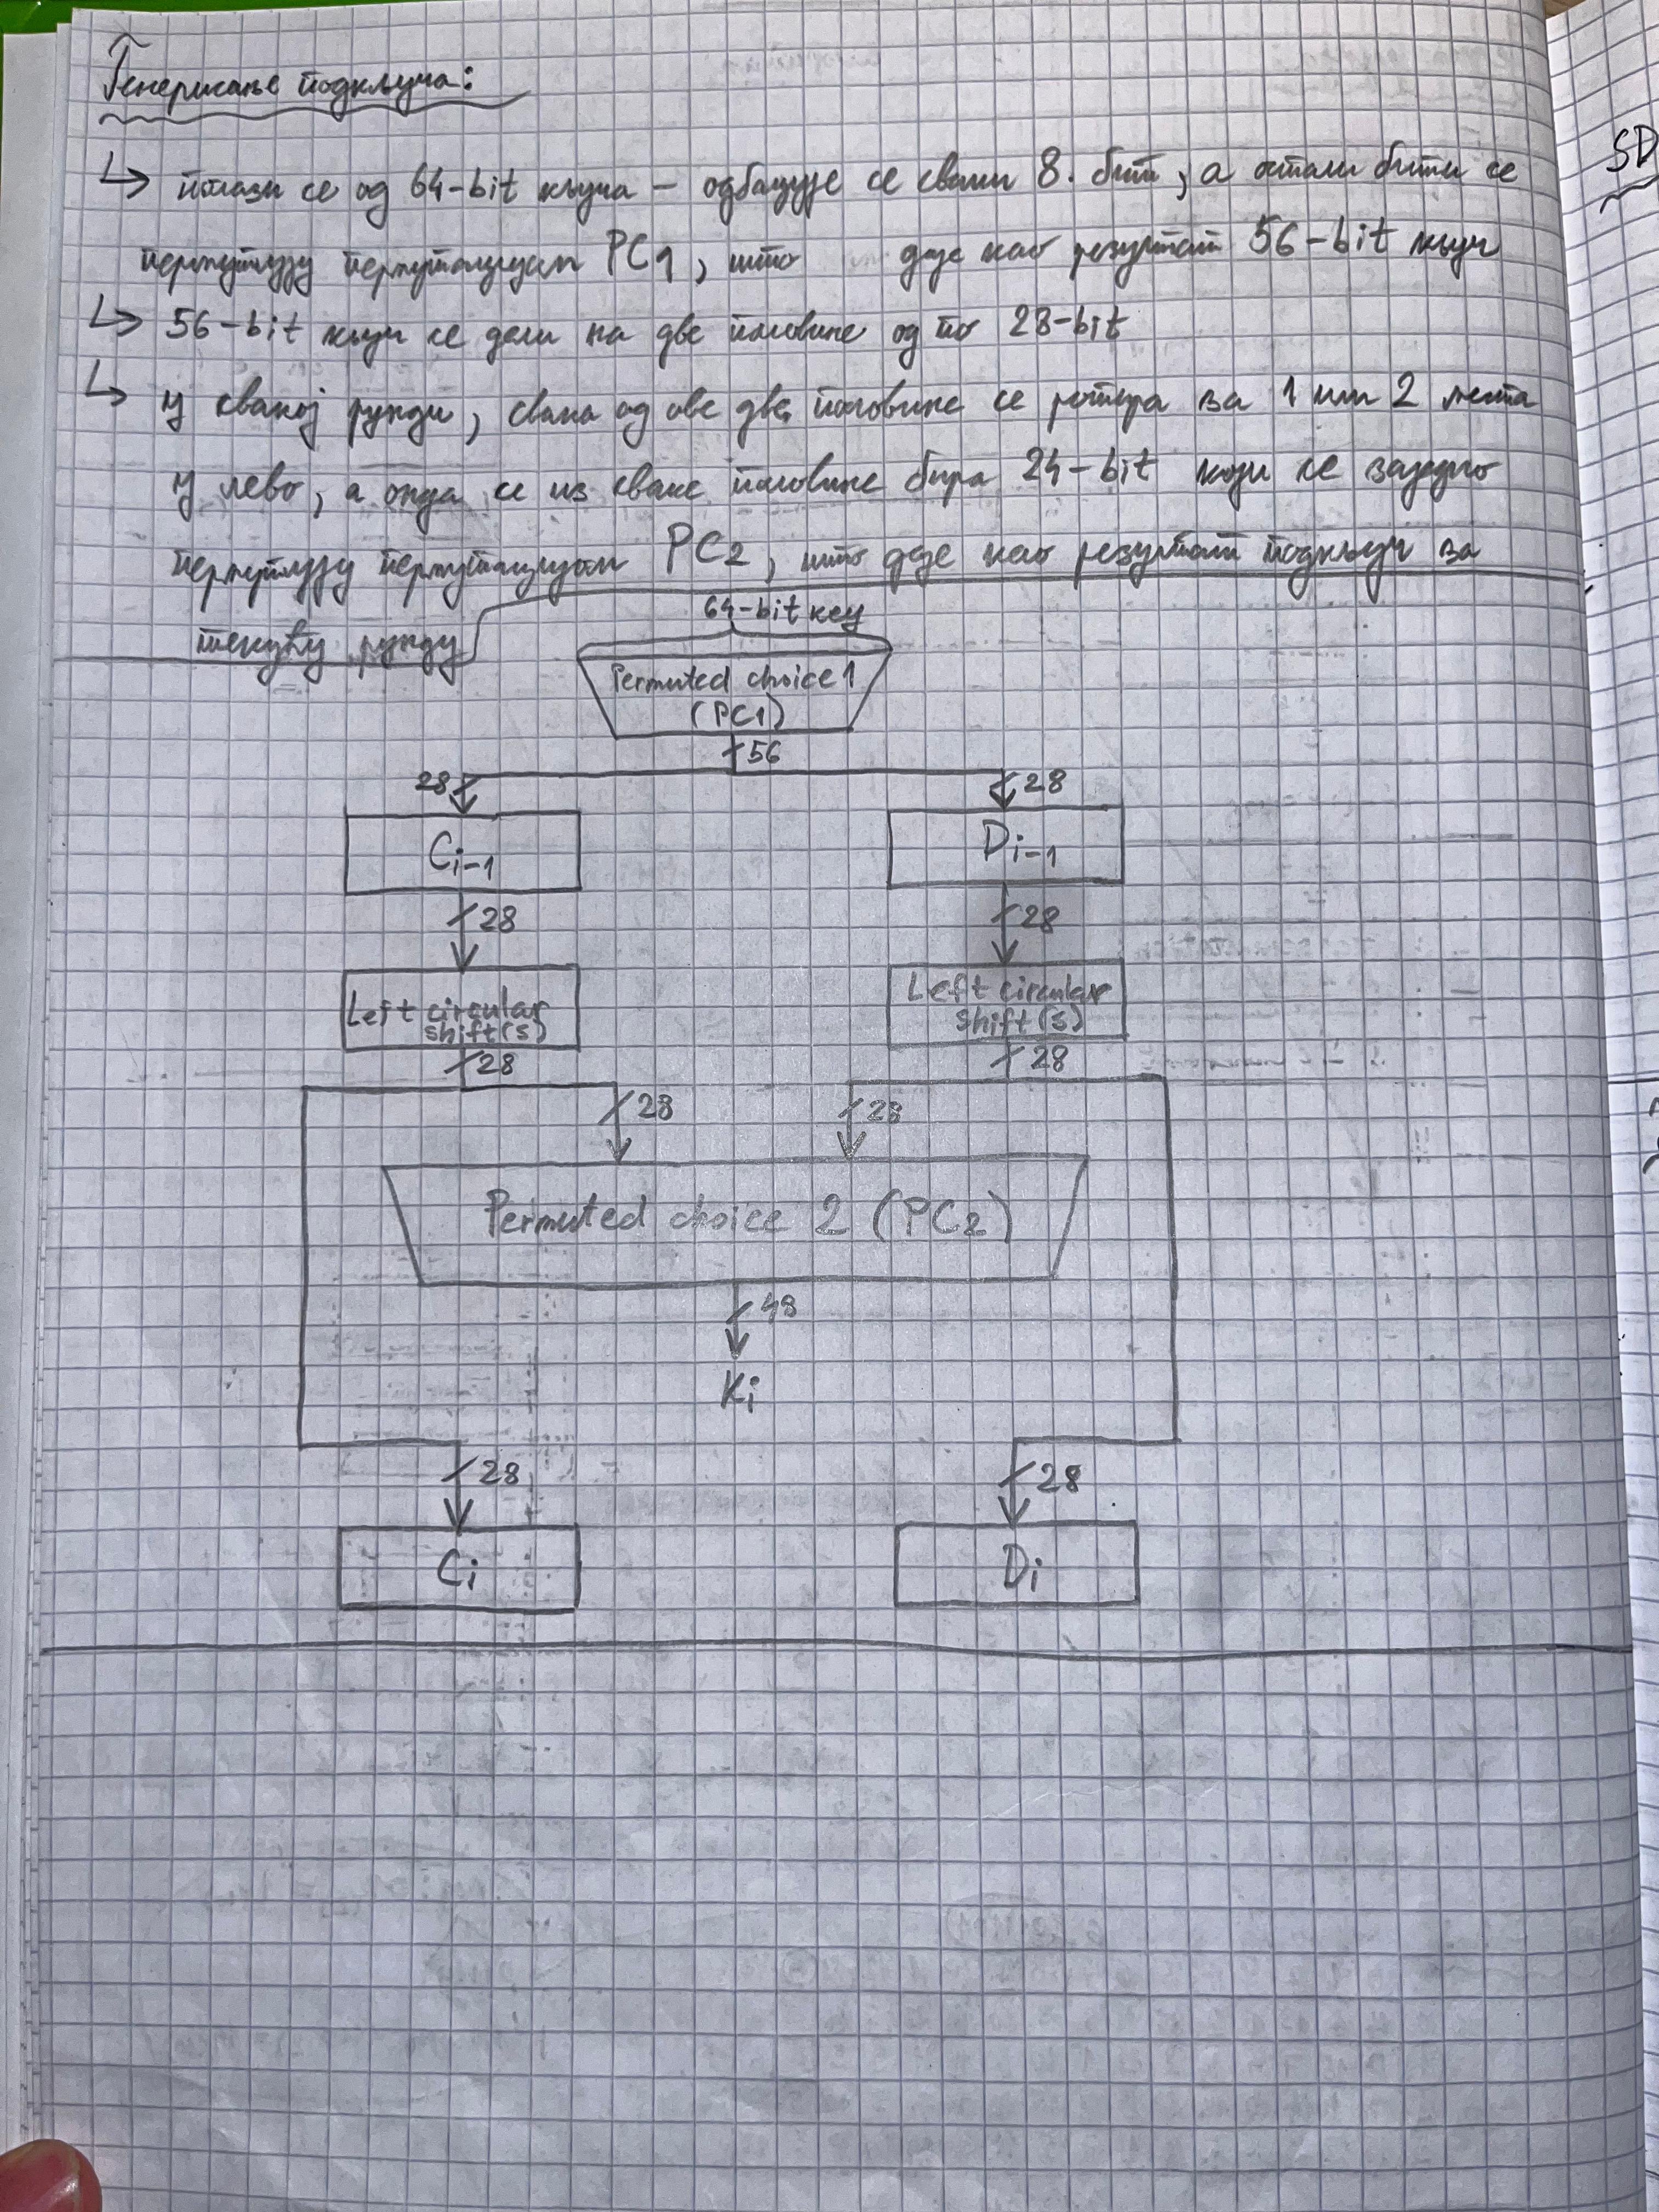 Генерисање подкључа:
↳ полази се од 64-bit кључа – одбацује се сваки 8. бит, а остали бити се
пермутују пермутацијом PC1, што даје као резултат 56-bit кључ
↳ 56-bit кључ се дели на две половине од по 28-bit
↳ у свакој рунди, свака од ове две половине се ротира за 1 или 2 места
у лево, а онда се из сваке половине бира 24-bit који се заједно
пермутују пермутацијом PC2, што даје као резултат подкључ за
текућу рунду
64-bit key
Permuted choice 1
(PC1)
56
28 28
Ci-1 Di-1
28 28
Left circular Left circular
shift(s) shift(s)
28 28
28 28
Permuted choice 2 (PC2)
48
Ki
28 28
Ci Di
SD